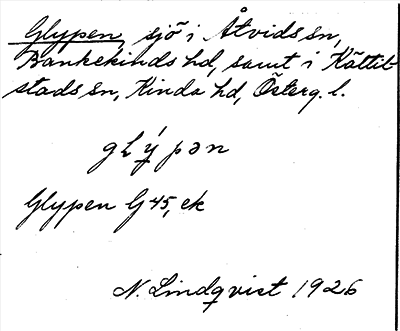 Glypen, sjö i Åtvids sn,
Bankekinds hd, samt i Kättil-
stads sn, Kinda hd, Österg. l.
gLý̠pən
Glypen G 45, ek
N. Lindqvist 1926